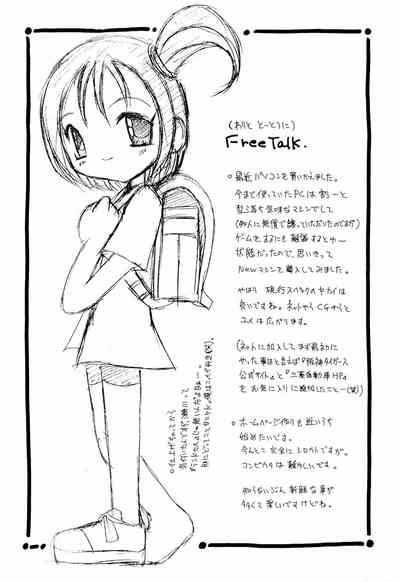 (わりと とーとつに)
Free Talk.
○最近パソコンを買いかえました。
今まで使っていたPCは割ーと
型落ち気味なマシンでして
(知人に無償で譲っていただいたのですが)
ゲームをするにも難儀するとゆー
状態だったので、思いきって
Newマシンを導入してみました。
やはり現行スペックのキカイは
良いですね。ネットやらCGやらと
ユメは広がります。
(ネットに加入してまず最初に
やった事はと言えば『阪神タイガース
公式サイト』と『三菱自動車HP』
をお気に入りに追加したことー(笑)
○ホームページ作りも近いうち
始めたいです。
今んとこ完全にシロウトですが。
コンピュータは難かしいです。
知らないぶん新鮮な事が
多くて楽しいですけどね。
○仕上げちゃってから